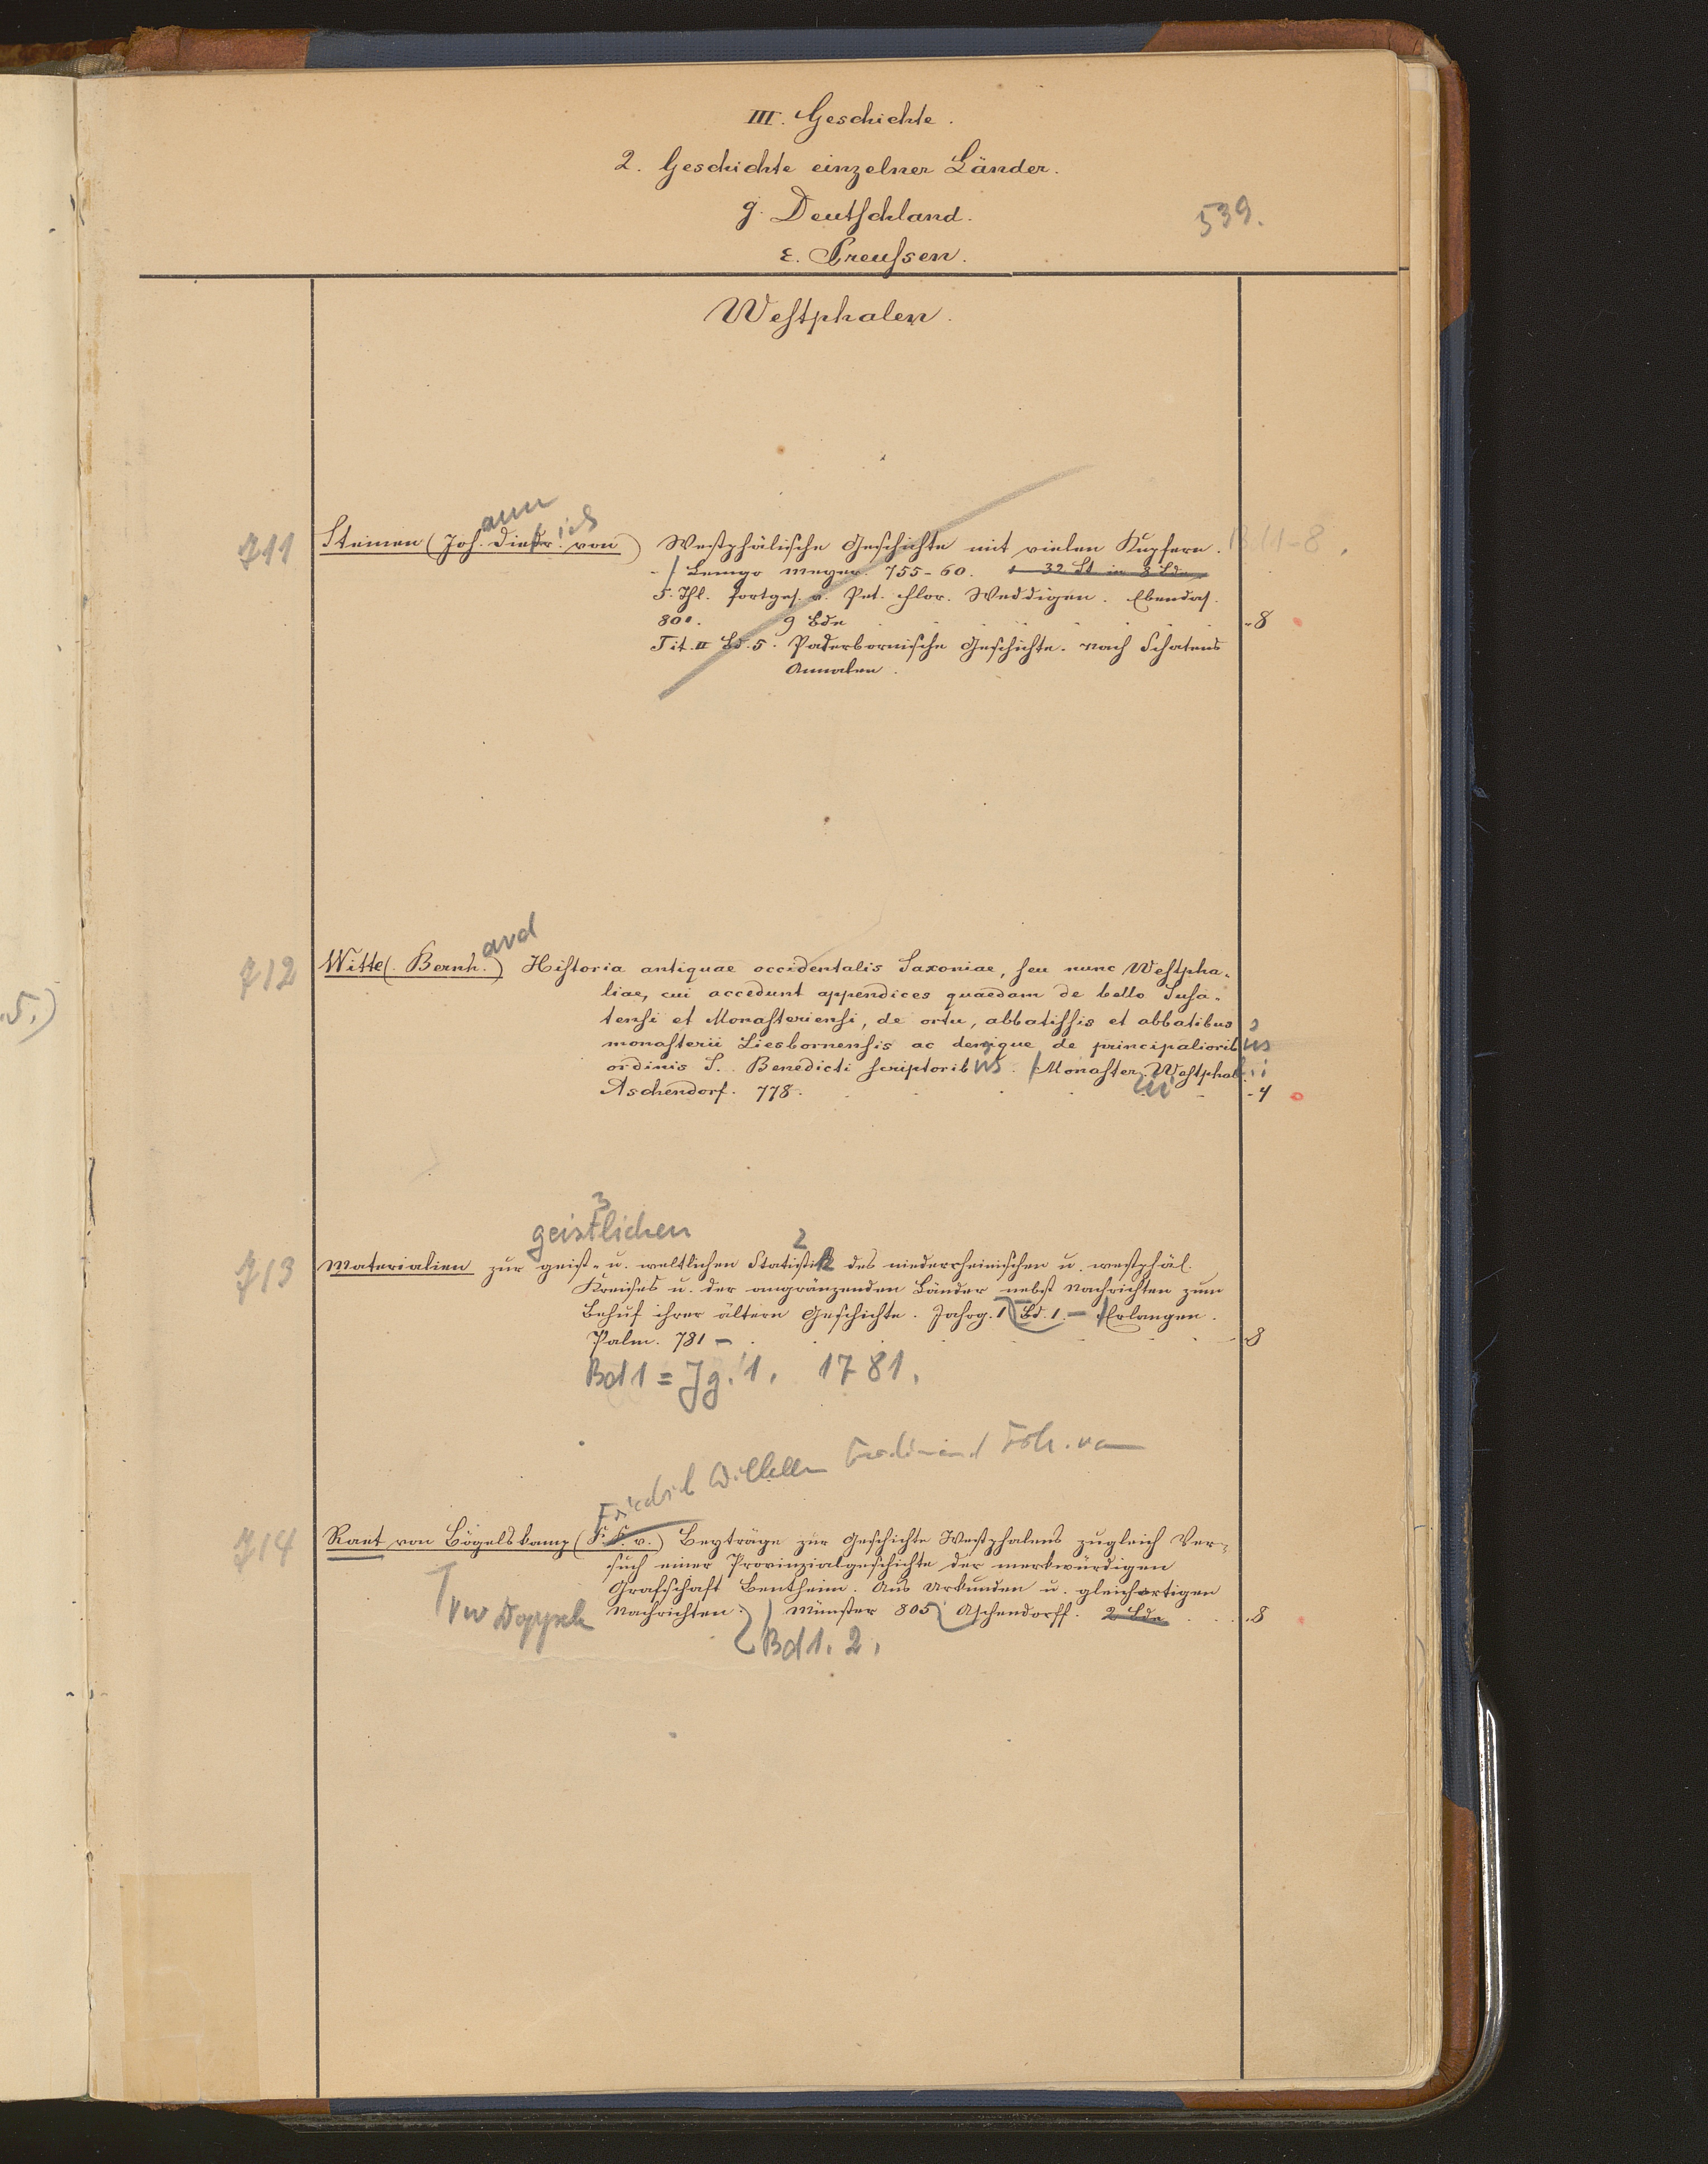 III. Geschichte.
2. Geschichte einzelner Länder.
g. Deutschland.
539.
ε. Preussen.
Westphalen.
ann
ich
711 Steinen (Joh. Diedr. von) Westphälische Geschichte mit vielen Kupfern. Bd 1-8.
Lemgo Meyer. 755-60. 32 St in 8 Bde
5. Thl. fortges. v. Pet. Flor. Weddigen. Ebendas.
801. 9 Bde - 8
Tit. II Bd. 5. Paderbornische Geschichte. Nach Schatens
Annalen.
ard
712 Witte (Bernh.) Historia antiquae occidentalis Saxoniae, seu nunc Westpha-
liae, cui accedunt appendices quaedam de bello Susa-
tensi et Monasteriensi, de ortu, abbatissis et abbatibus
monasterii Liesbornensis ac denique de principalioribus
ordinis S. Benedicti scriptoribus. Monaster. Westphal.
Aschendorf. 778. - 4
3
geistlichen
2
713 Materialien zur geist- u. weltlichen Statistik des niederrheinischen u. westphäl.
Kreises u. der angränzenden Länder nebst Nachrichten zum
Behuf ihrer ältern Geschichte. Jahrg. 1 Bd. 1. - Erlangen.
Palm. 781 - 8
Bd 1 = Jg. 1. 1781.
Friedrich Wilhelm Ferdinand Frh. von
714 Raet von Bögelskamp (F. F. v.) Beyträge zur Geschichte Westphalens zugleich Ver-
such einer Provinzialgeschichte der merkwürdigen
Grafschaft Bentheim. Aus Urkunden u. gleichartigen
Nachrichten. Münster 805 Aschendorff. 2 Bde - 8
Bd 1. 2.